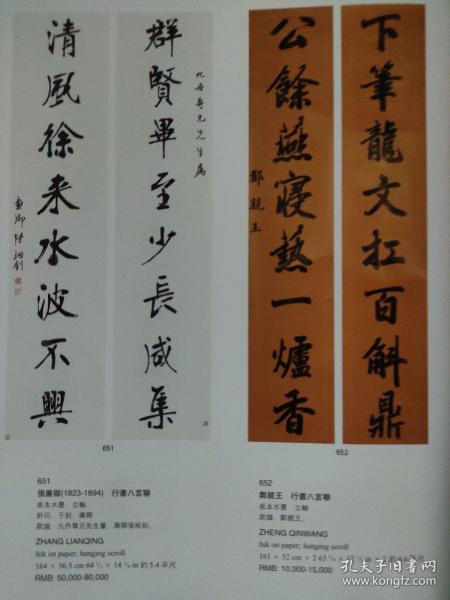 群賢畢至少長咸集
九丹尊兄先生属
清風徐來水波不興
廉卿張裕釗
下筆龍文扛百斛鼎
公餘燕寢爇一爐香
鄭親王
651
652
651
張廉卿(1823-1894) 行書八言聯
紙本水墨 立軸
款識:九丹尊兄先生屬,廉卿張裕釗。
ZHANG LIANQING
Ink on paper; hanging scroll
164 × 36.5 cm 64 ½ × 14 ¼ in 約5.4平尺
RMB: 50,000-80,000
652
鄭親王 行書八言聯
紙本水墨 立軸
款識:鄭親王。
ZHENG QINWANG
Ink on paper; hanging scroll
161 × 32 cm × 2 63
RMB: 10,000-15,000
孔夫子旧书网